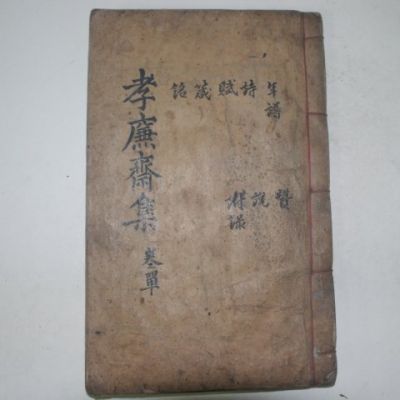 年譜
詩
賦
箴
銘
贊
說
附錄
孝廉齋集 卷單